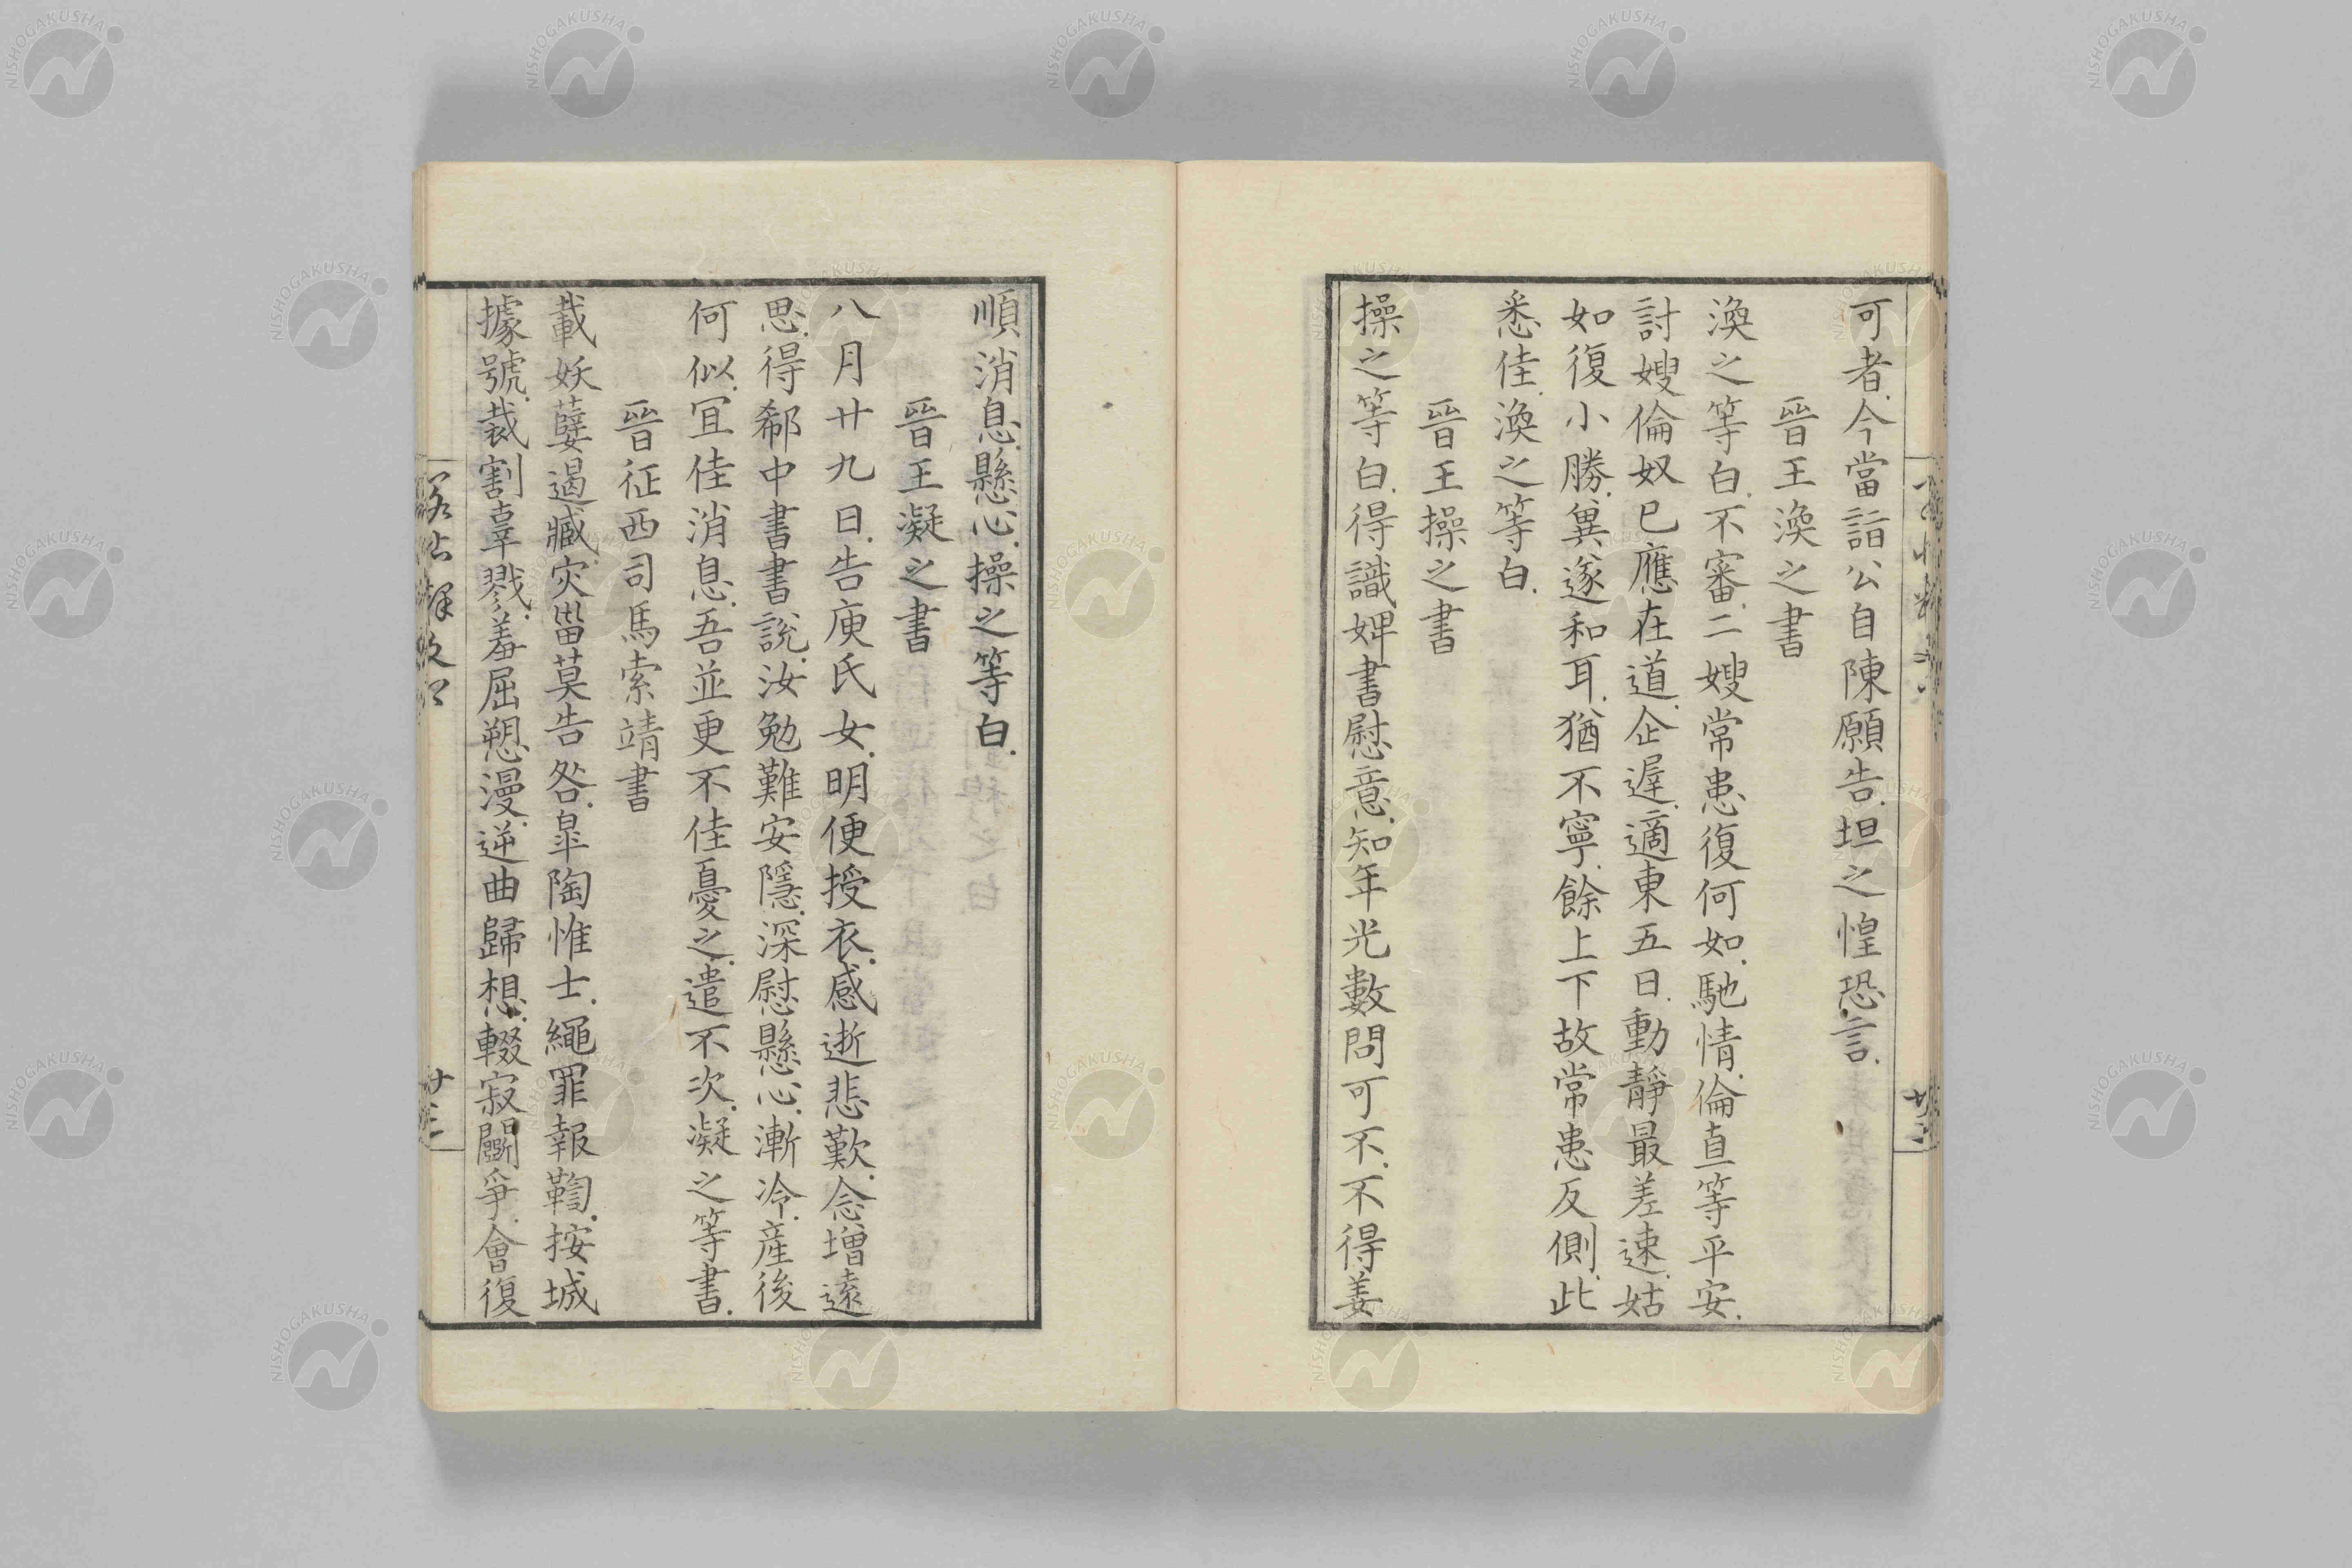 可者.今當詣公自陳願告.坦之惶恐.言.
晉王渙之書
渙之等白.不審.二嫂常患復何如.馳情.倫直等平安.
討嫂倫奴已應在道.企遲.適東五日.動靜最差速.姑
如復小勝.冀遂和耳.猶不寧.餘上下故常患反側.此
悉佳.渙之等白.
晉王操之書
操之等白.得識婢書慰意.知年光數問可不.不得姜
廿二
順消息.懸心.操之等白.
晉王凝之書
八月廿九日.告庾氏女.明便授衣.感逝悲歎.念增遠
思.得郗中書書說.汝勉難安隱.深慰懸心.漸冷.產後
何似.宜佳消息.吾並更不佳憂之.遣不次.凝之等書.
晉征西司馬索靖書
載妖孽遏臧.灾甾莫告咎.皐陶惟士.繩罪報鞫.按城
據號.裁割辜戮.羞屈愬漫.逆曲歸想.輟寂鬬爭.會復
NISHOGAKUSHA